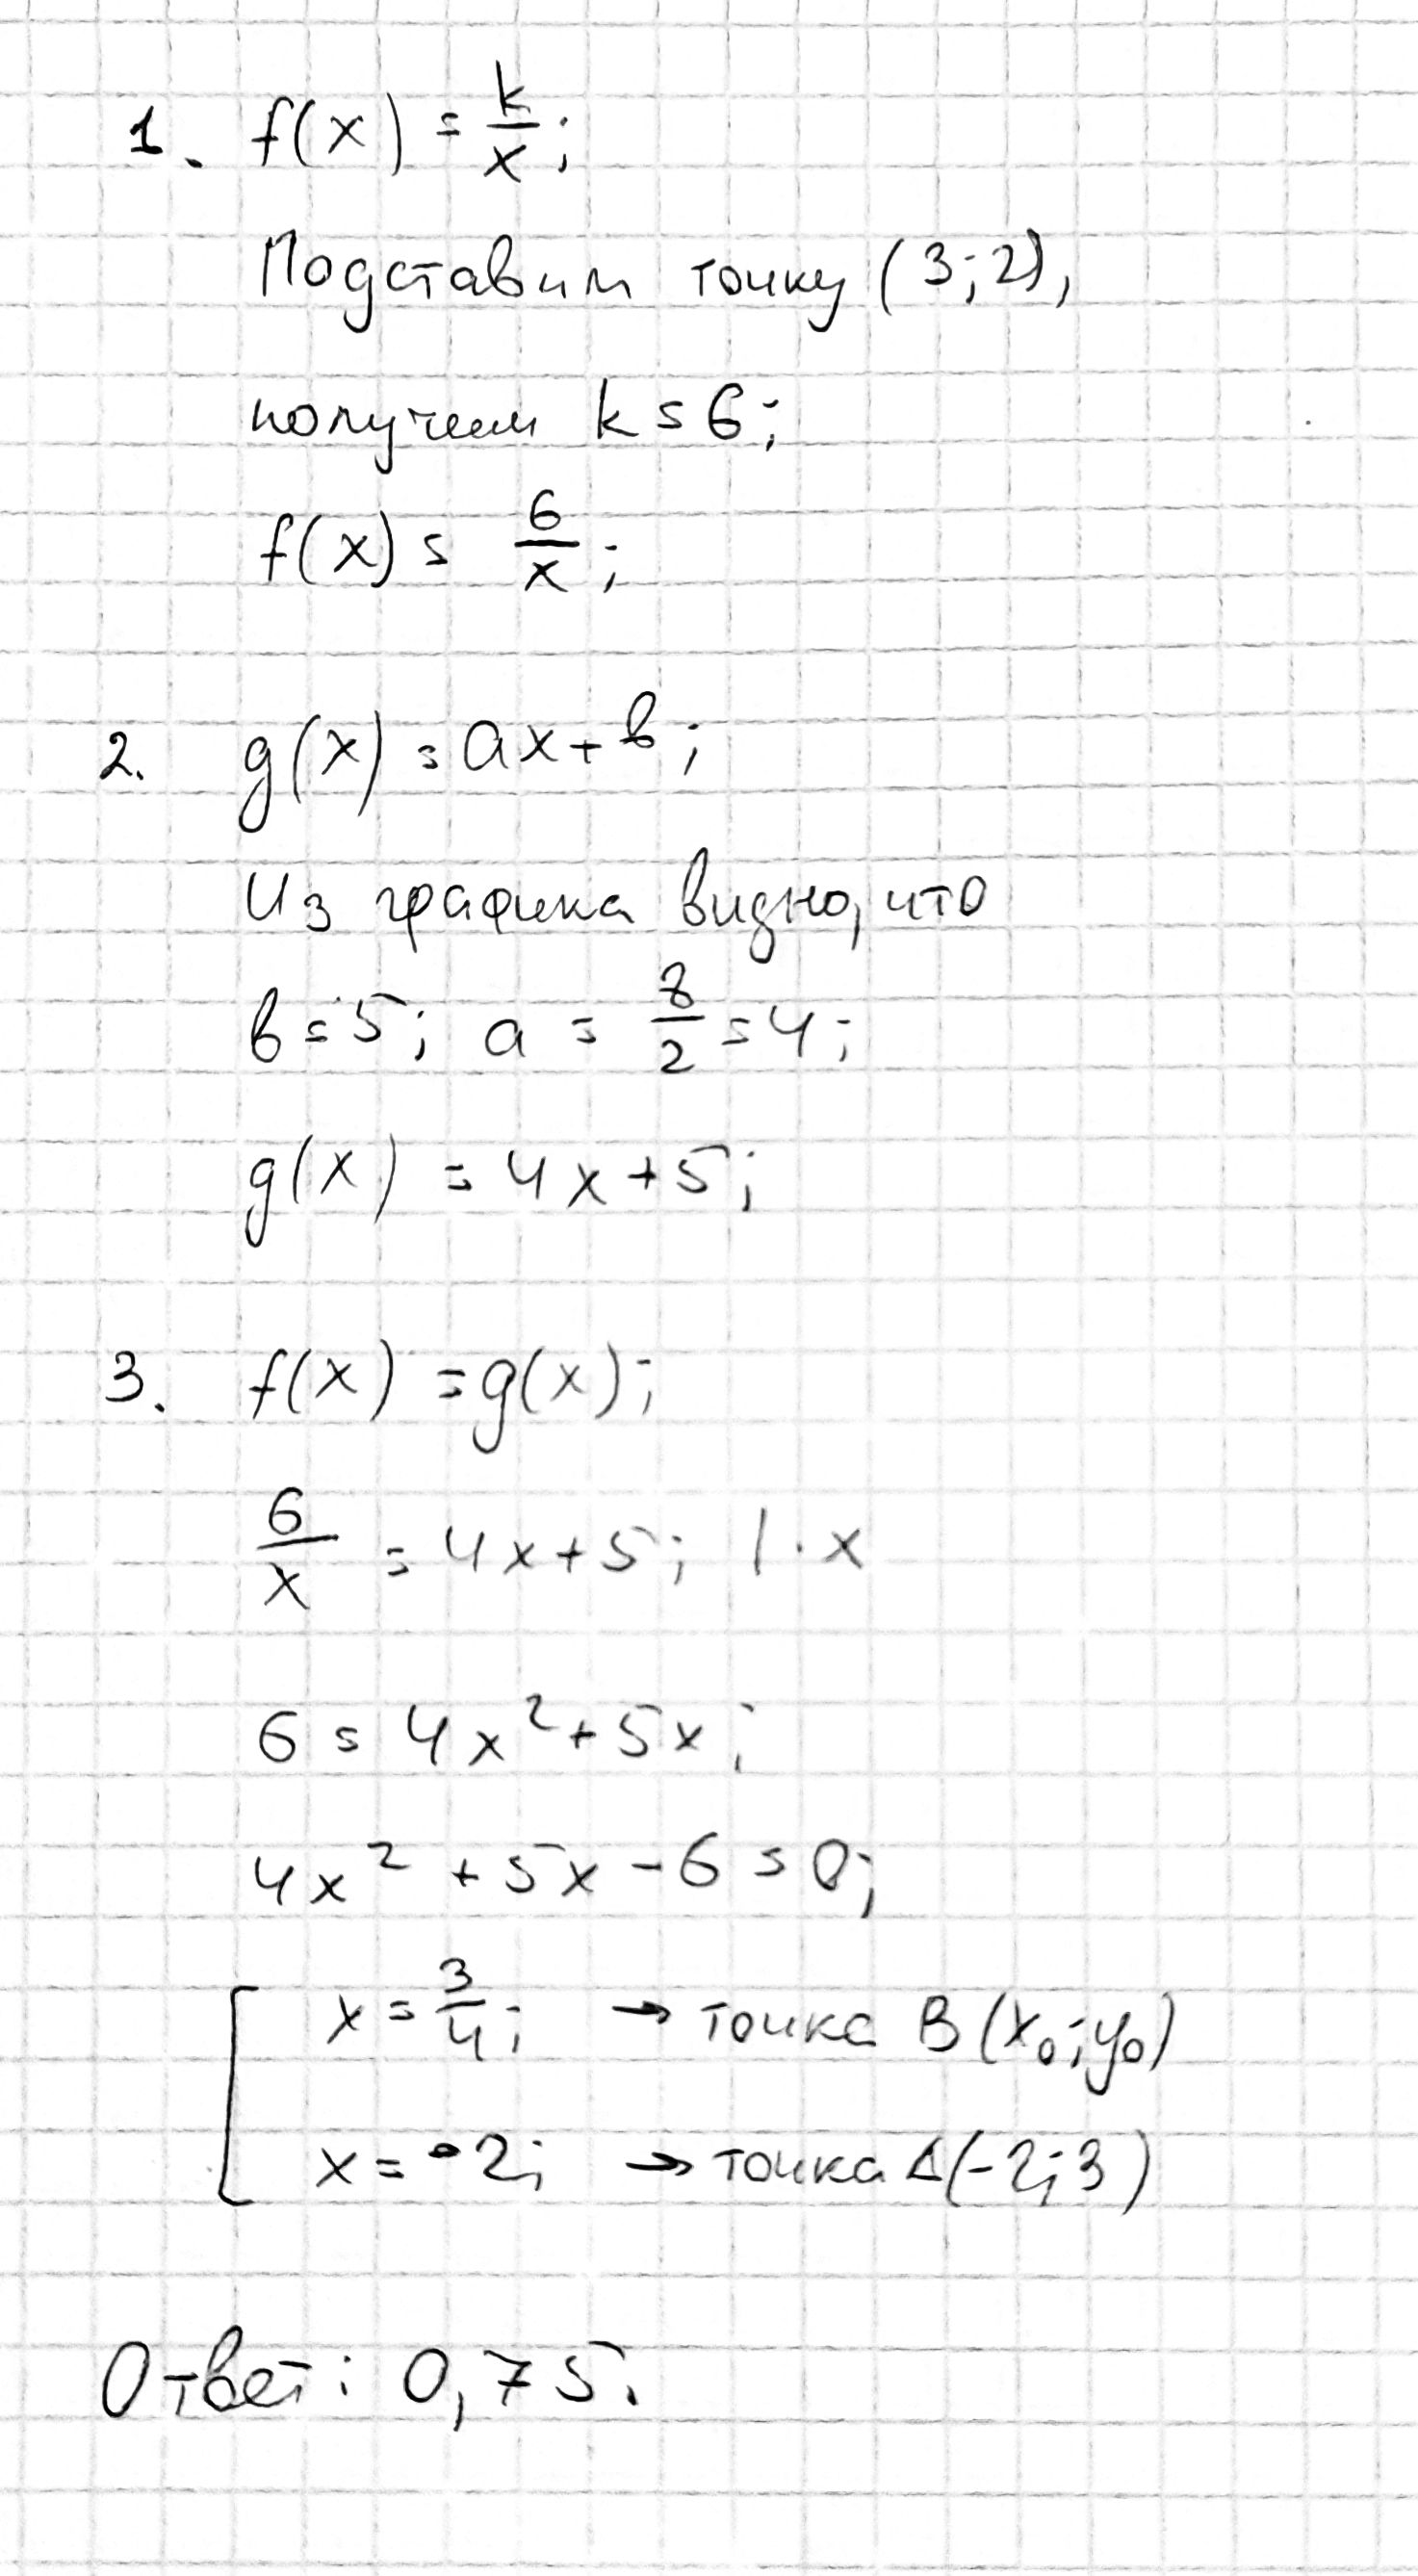 1. f(x) = k/x;
Подставим точку (3;2),
получим k = 6;
f(x) = 6/x;
2. g(x) = ax + b;
Из графика видно, что
b = 5; a = 8/2 = 4;
g(x) = 4x + 5;
3. f(x) = g(x);
6/x = 4x + 5; | · x
6 = 4x² + 5x;
4x² + 5x - 6 = 0;
[ x = 3/4; → точка B(x₀; y₀)
x = -2; → точка A(-2; 3)
Ответ: 0,75.